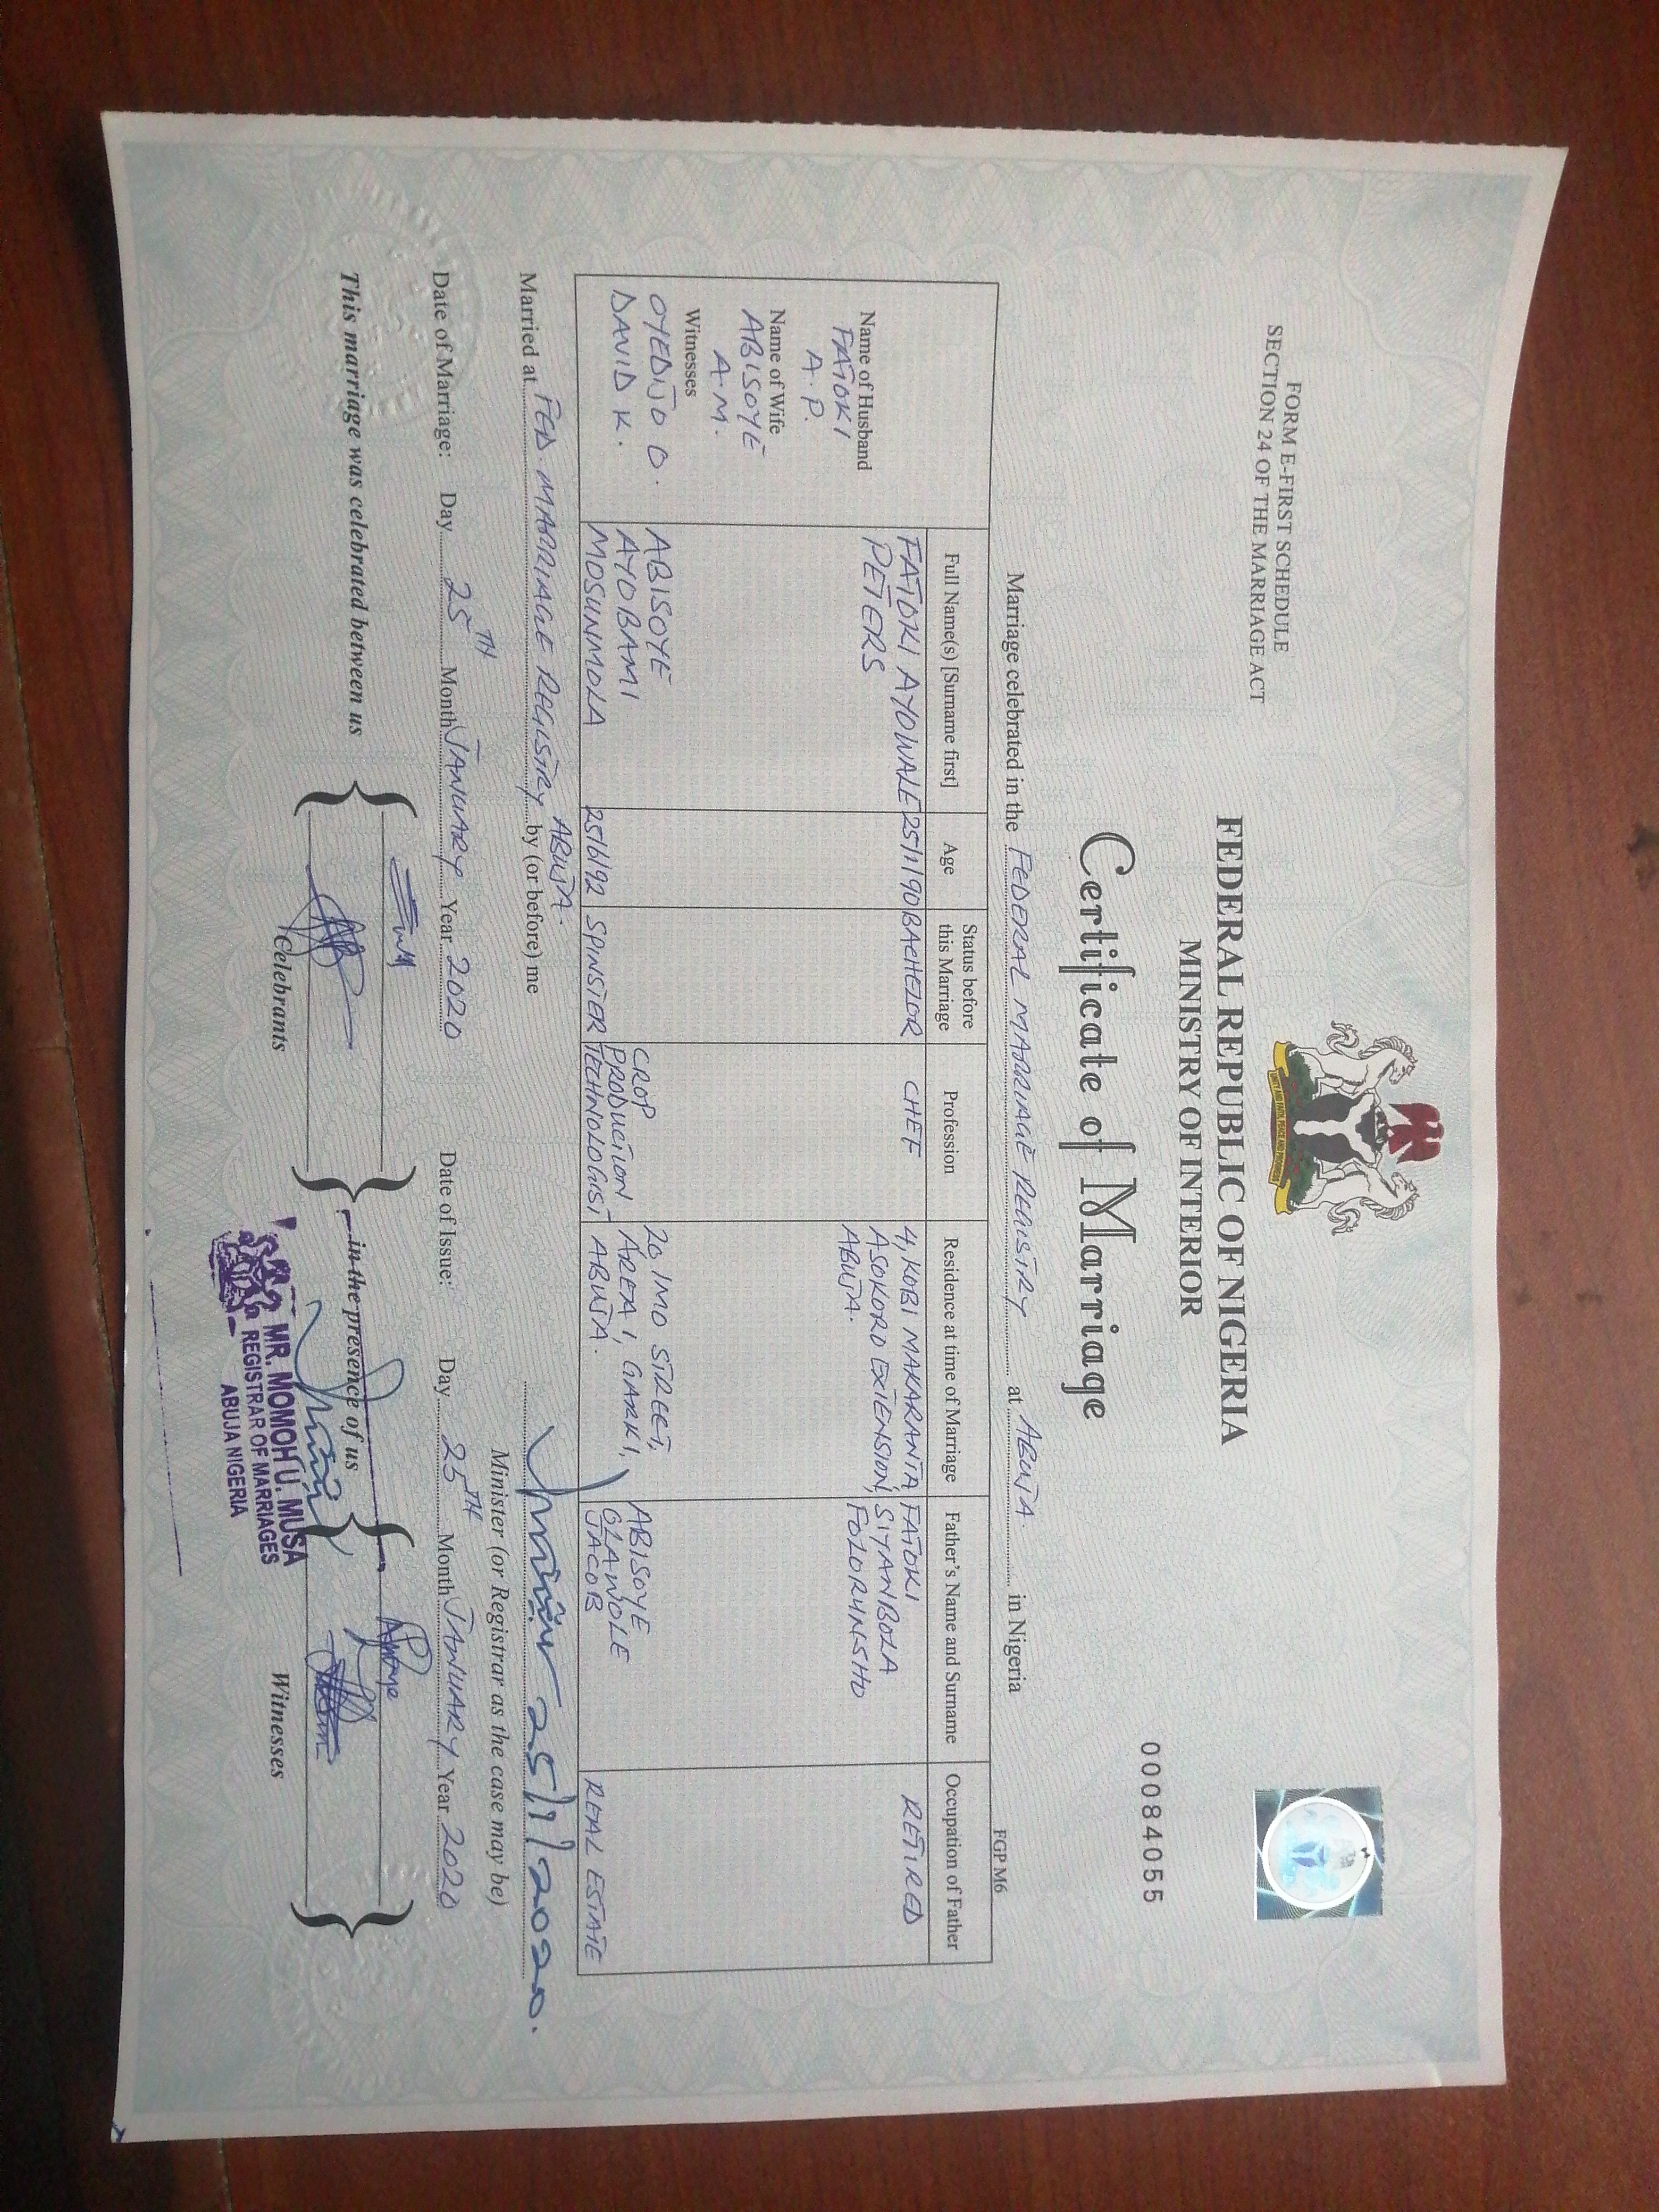 FORM E-FIRST SCHEDULE
SECTION 24 OF THE MARRIAGE ACT
FEDERAL REPUBLIC OF NIGERIA
MINISTRY OF INTERIOR
00084055
Certificate of Marriage
FGP M6
Marriage celebrated in the FEDERAL MARRIAGE REGISTRY at ABUJA in Nigeria
Full Name(s) [Surname first]
Age
Status before
this Marriage
Profession
Residence at time of Marriage
Father's Name and Surname
Occupation of Father
Name of Husband
FATOKI
A.P.
FATOKI AYOWALE
PETERS
25/1/90
BACHELOR
CHEF
4, KOBI MAKARANTA,
ASOKORO EXTENSION,
ABUJA.
FATOKI
SIYANBOLA
FOLORUNSHO
RETIRED
Name of Wife
ABISOYE
A.M.
Witnesses
OYEDIJO O.
DAVID K.
ABISOYE
AYOBAMI
MOSUNMOLA
25/6/92
SPINSTER
CROP
PRODUCTION
TECHNOLOGIST
20, IMO STREET,
AREA 1, GARKI,
ABUJA.
ABISOYE
OLAWOLE
JACOB
REAL ESTATE
Married at FED. MARRIAGE REGISTRY ABUJA. by (or before) me
25/1/2020.
Minister (or Registrar as the case may be)
Date of Marriage: Day 25TH Month JANUARY Year 2020
Date of Issue: Day 25TH Month JANUARY Year 2020
This marriage was celebrated between us
in the presence of us
Celebrants
Witnesses
MR. MOMOH U. MUSA
REGISTRAR OF MARRIAGES
ABUJA NIGERIA